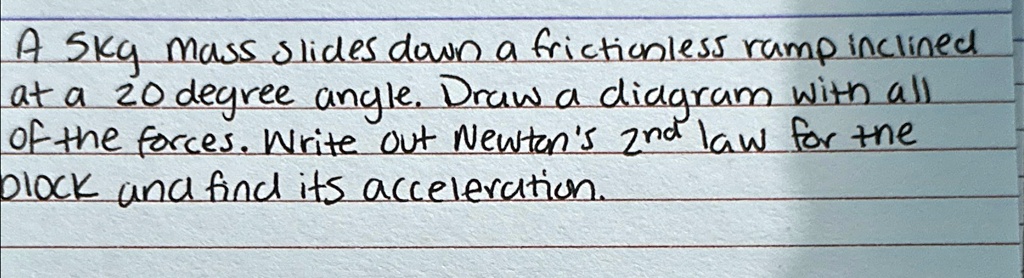 A 5kg mass slides down a frictionless ramp inclined
at a 20 degree angle. Draw a diagram with all
of the forces. Write out Newton's 2nd law for the
block and find its acceleration.